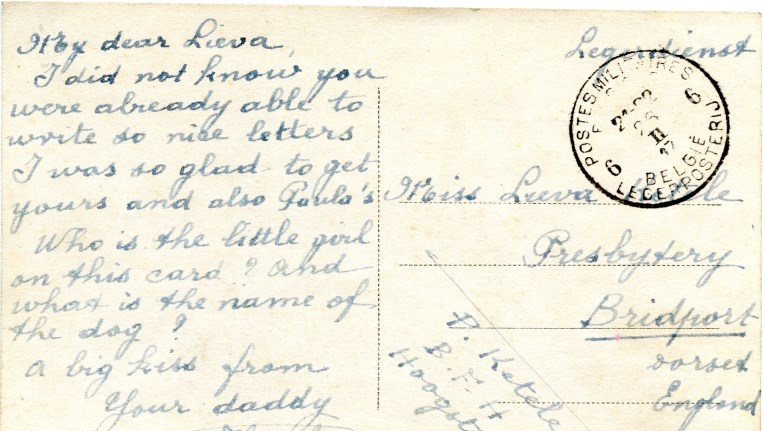 My dear Lieva,
I did not know you
were already able to
write so nice letters
I was so glad to get
yours and also Paula's
Who is the little girl
on this card? And
what is the name of
the dog?
A big kiss from
Your daddy
Legerdienst
POSTES MILITAIRES
BELGIE
LEGERPOSTERIJ
6 6
21-22
II
17
Miss Lieva Ketele
Presbytery
Bridport
Dorset
England
P. Ketele
B.F.H
Hoogst